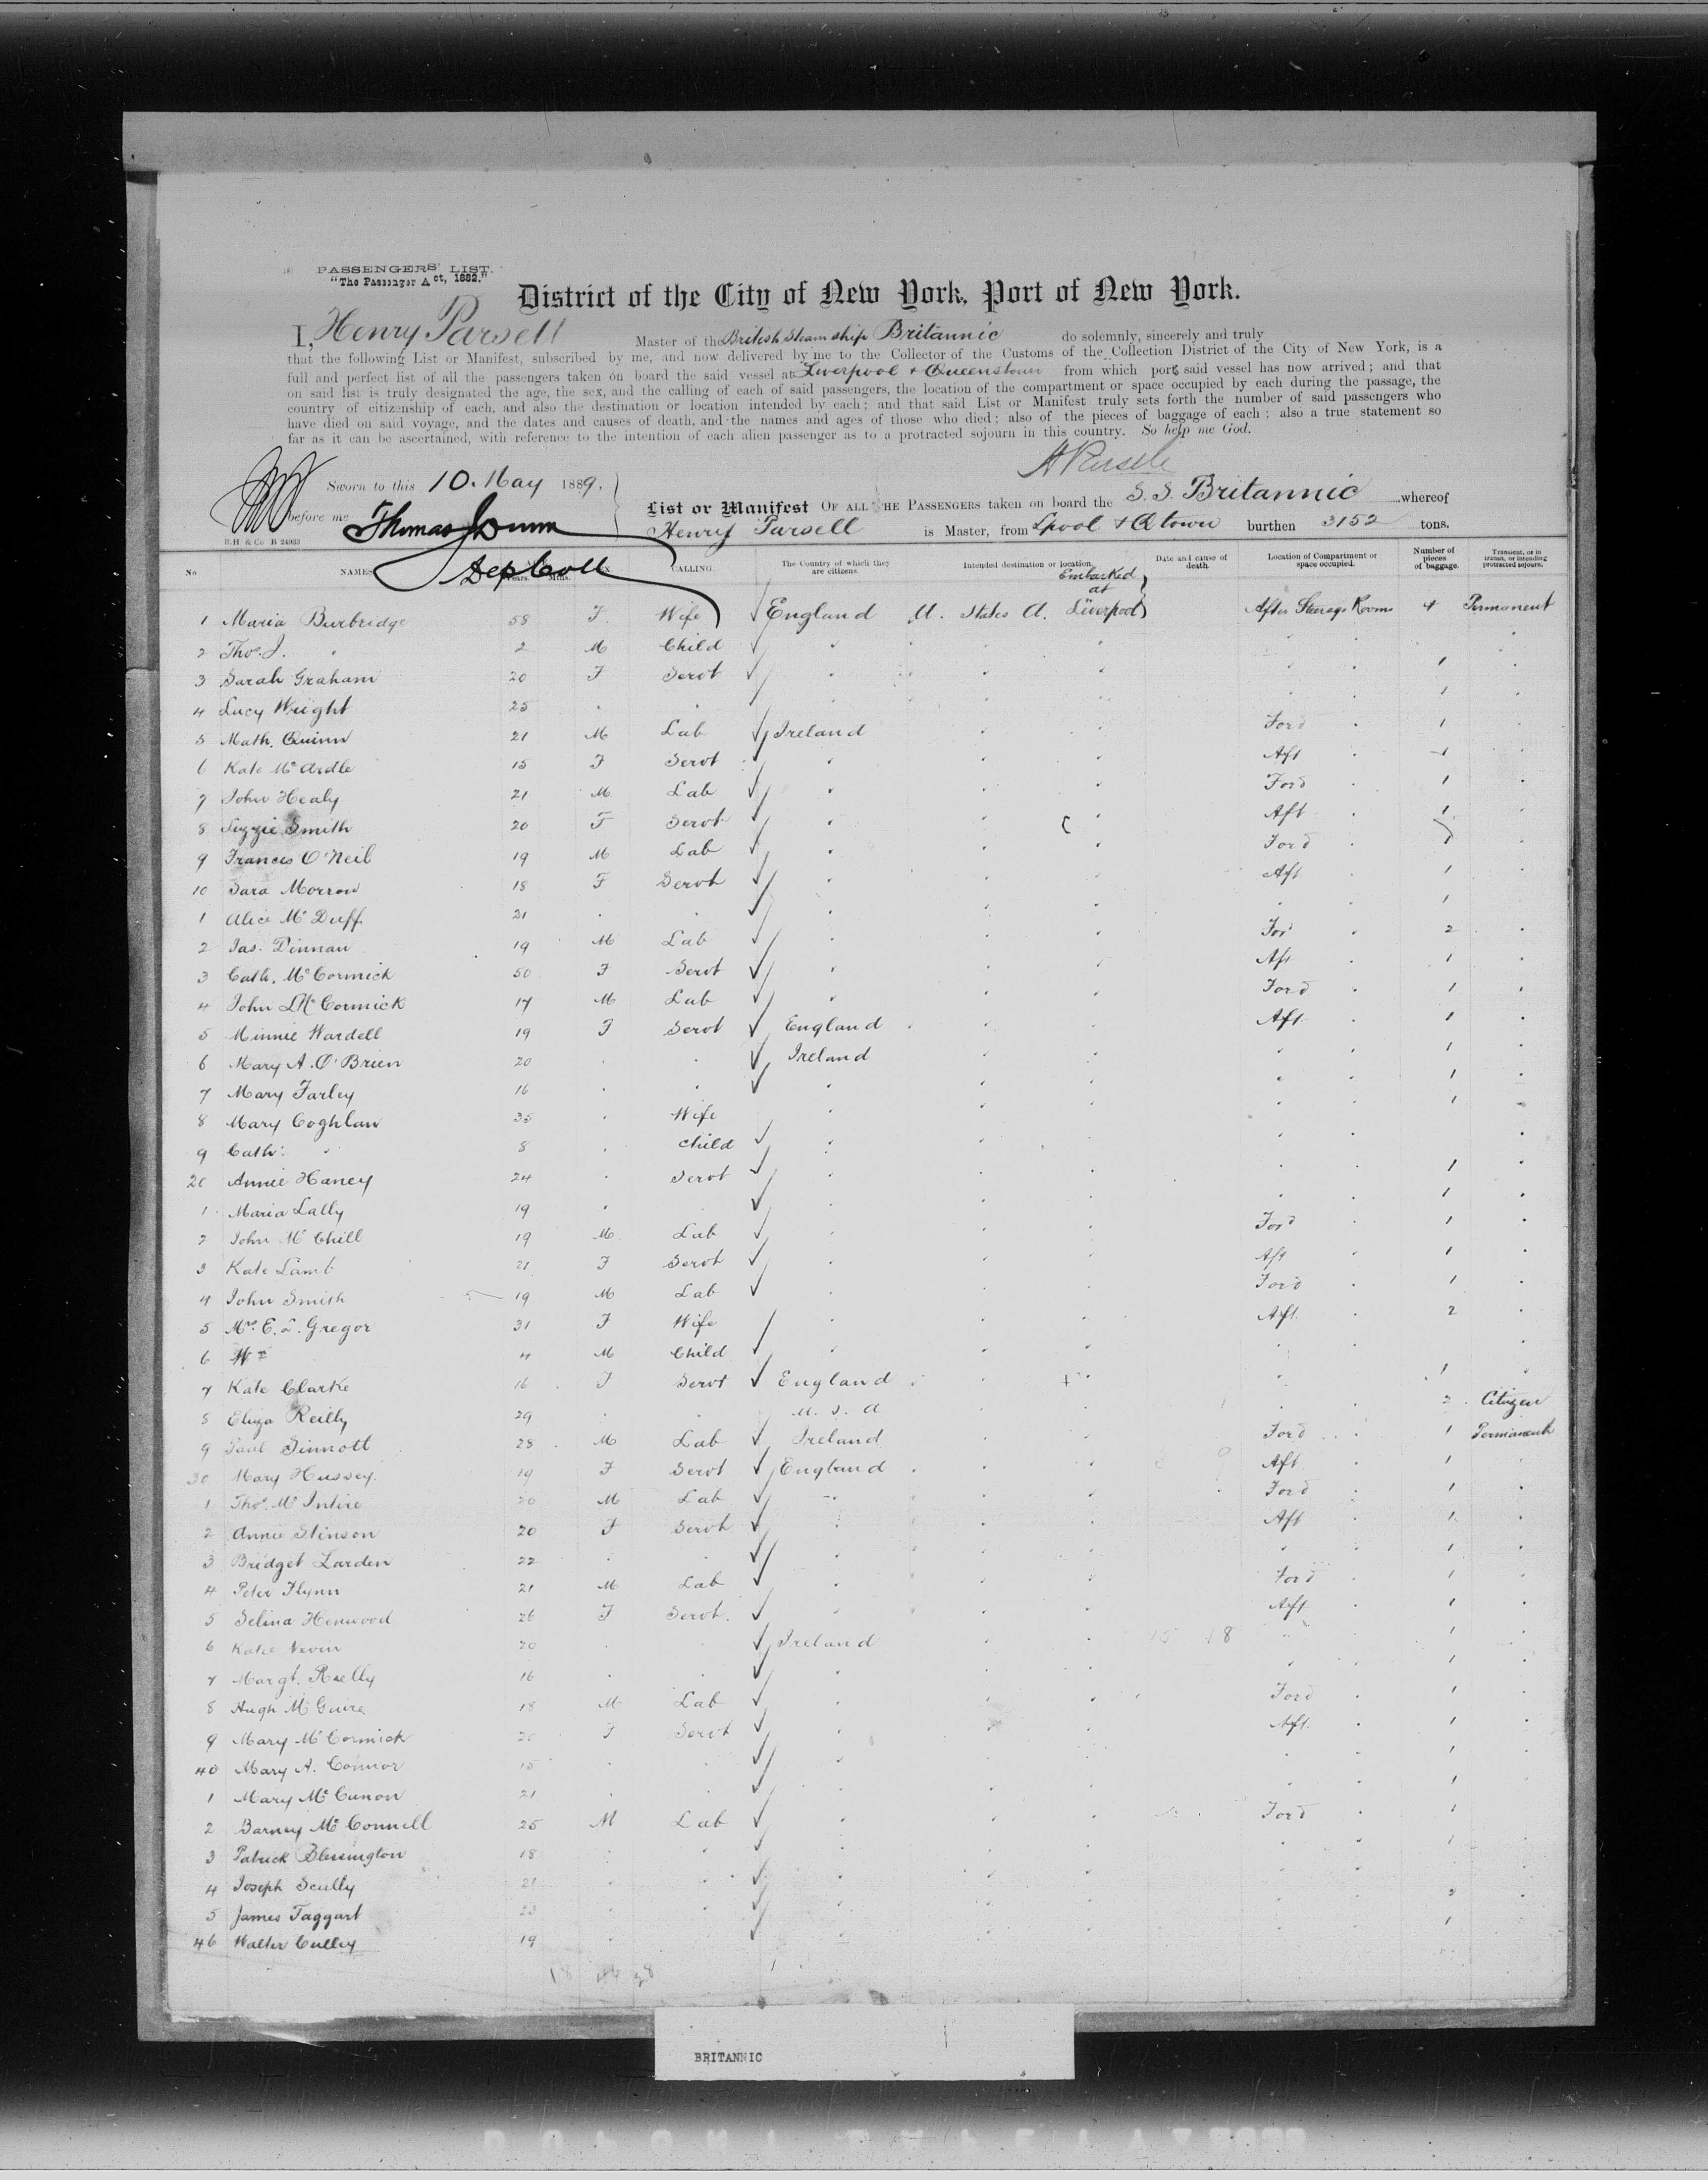 PASSENGERS' LIST.
"The Passenger Act, 1882."
District of the City of New York, Port of New York.
I, Henry Parsell Master of the British Steam ship Britannic do solemnly, sincerely and truly
that the following List or Manifest, subscribed by me, and now delivered by me to the Collector of the Customs of the Collection District of the City of New York, is a
full and perfect list of all the passengers taken on board the said vessel at Liverpool & Queenstown from which ports said vessel has now arrived; and that
on said list is truly designated the age, the sex, and the calling of each of said passengers, the location of the compartment or space occupied by each during the passage, the
country of citizenship of each, and also the destination or location intended by each; and that said List or Manifest truly sets forth the number of said passengers who
have died on said voyage, and the dates and causes of death, and the names and ages of those who died; also of the pieces of baggage of each; also a true statement so
far as it can be ascertained, with reference to the intention of each alien passenger as to a protracted sojourn in this country. So help me God.
H Parsell
Sworn to this 10. May 1889.
before me Thomas Dunn
Dep Coll
B.H. & Co B 24933
List or Manifest OF ALL THE PASSENGERS taken on board the S.S. Britannic whereof
Henry Parsell is Master, from Lpool & Qtown burthen 3152 tons.
No NAMES Years. Mths. CALLING. The Country of which they are citizens. Intended destination or location. Date and cause of death. Location of Compartment or space occupied. Number of pieces of baggage. Transient, or in transit, or intending protracted sojourn.
Embarked at
1 Maria Burbridge 58 F. Wife England U. States A. Liverpool After Steerage Rooms 4 Permanent
2 Thos. J. " 2 M Child
3 Sarah Graham 20 F Servt 1
4 Lucy Wright 25 1
5 Math. Quinn 21 M Lab Ireland Ford 1
6 Kate McArdle 15 F Servt Aft 1
7 John Healy 21 M Lab Ford 1
8 Lizzie Smith 20 F Servt Aft 1
9 Frances O'Neil 19 M Lab Ford
10 Sara Morrow 18 F Servt Aft 1
1 Alice McDuff 21 1
2 Jas. Dennan 19 M Lab For 2
3 Cath. McCormick 50 F Servt Aft 1
4 John McCormick 17 M Lab Ford 1
5 Minnie Wardell 19 F Servt England Aft 1
6 Mary A. O'Brien 20 Ireland 1
7 Mary Farley 16 1
8 Mary Coghlan 35 Wife 1
9 Cath: " 8 Child
20 Annie Haney 24 Servt 1
1 Maria Lally 19 1
2 John McChill 19 M Lab Ford 1
3 Kate Lamb 21 F Servt Aft 1
4 John Smith 19 M Lab Ford 1
5 Mrs. E. L. Gregor 31 F Wife Aft 2
6 Wm 4 M Child
7 Kate Clarke 16 F Servt England 1
8 Eliza Reilly 29 U.S.A 2 Citizen
9 Paul Sinnott 28 M Lab Ireland Ford 1 Permanent
30 Mary Hussey 19 F Servt England Aft 1
1 Thos. McIntire 20 M Lab Ford 1
2 Annie Stinson 20 F Servt Aft 1
3 Bridget Larden 22 1
4 Peter Flynn 21 M Lab Ford 1
5 Selina Henwood 26 F Servt. Aft 1
6 Katie Nevin 20 Ireland 1
7 Margt. Reilly 16 1
8 Hugh McGuire 18 M Lab Ford 1
9 Mary McCormick 20 F Servt Aft. 1
40 Mary A. Connor 15 1
1 Mary McCunon 21 1
2 Barney McConnell 25 M Lab Ford 1
3 Patrick Blessington 18 1
4 Joseph Scully 21
5 James Taggart 23 2
46 Walter Culley 19 1
BRITANNIC